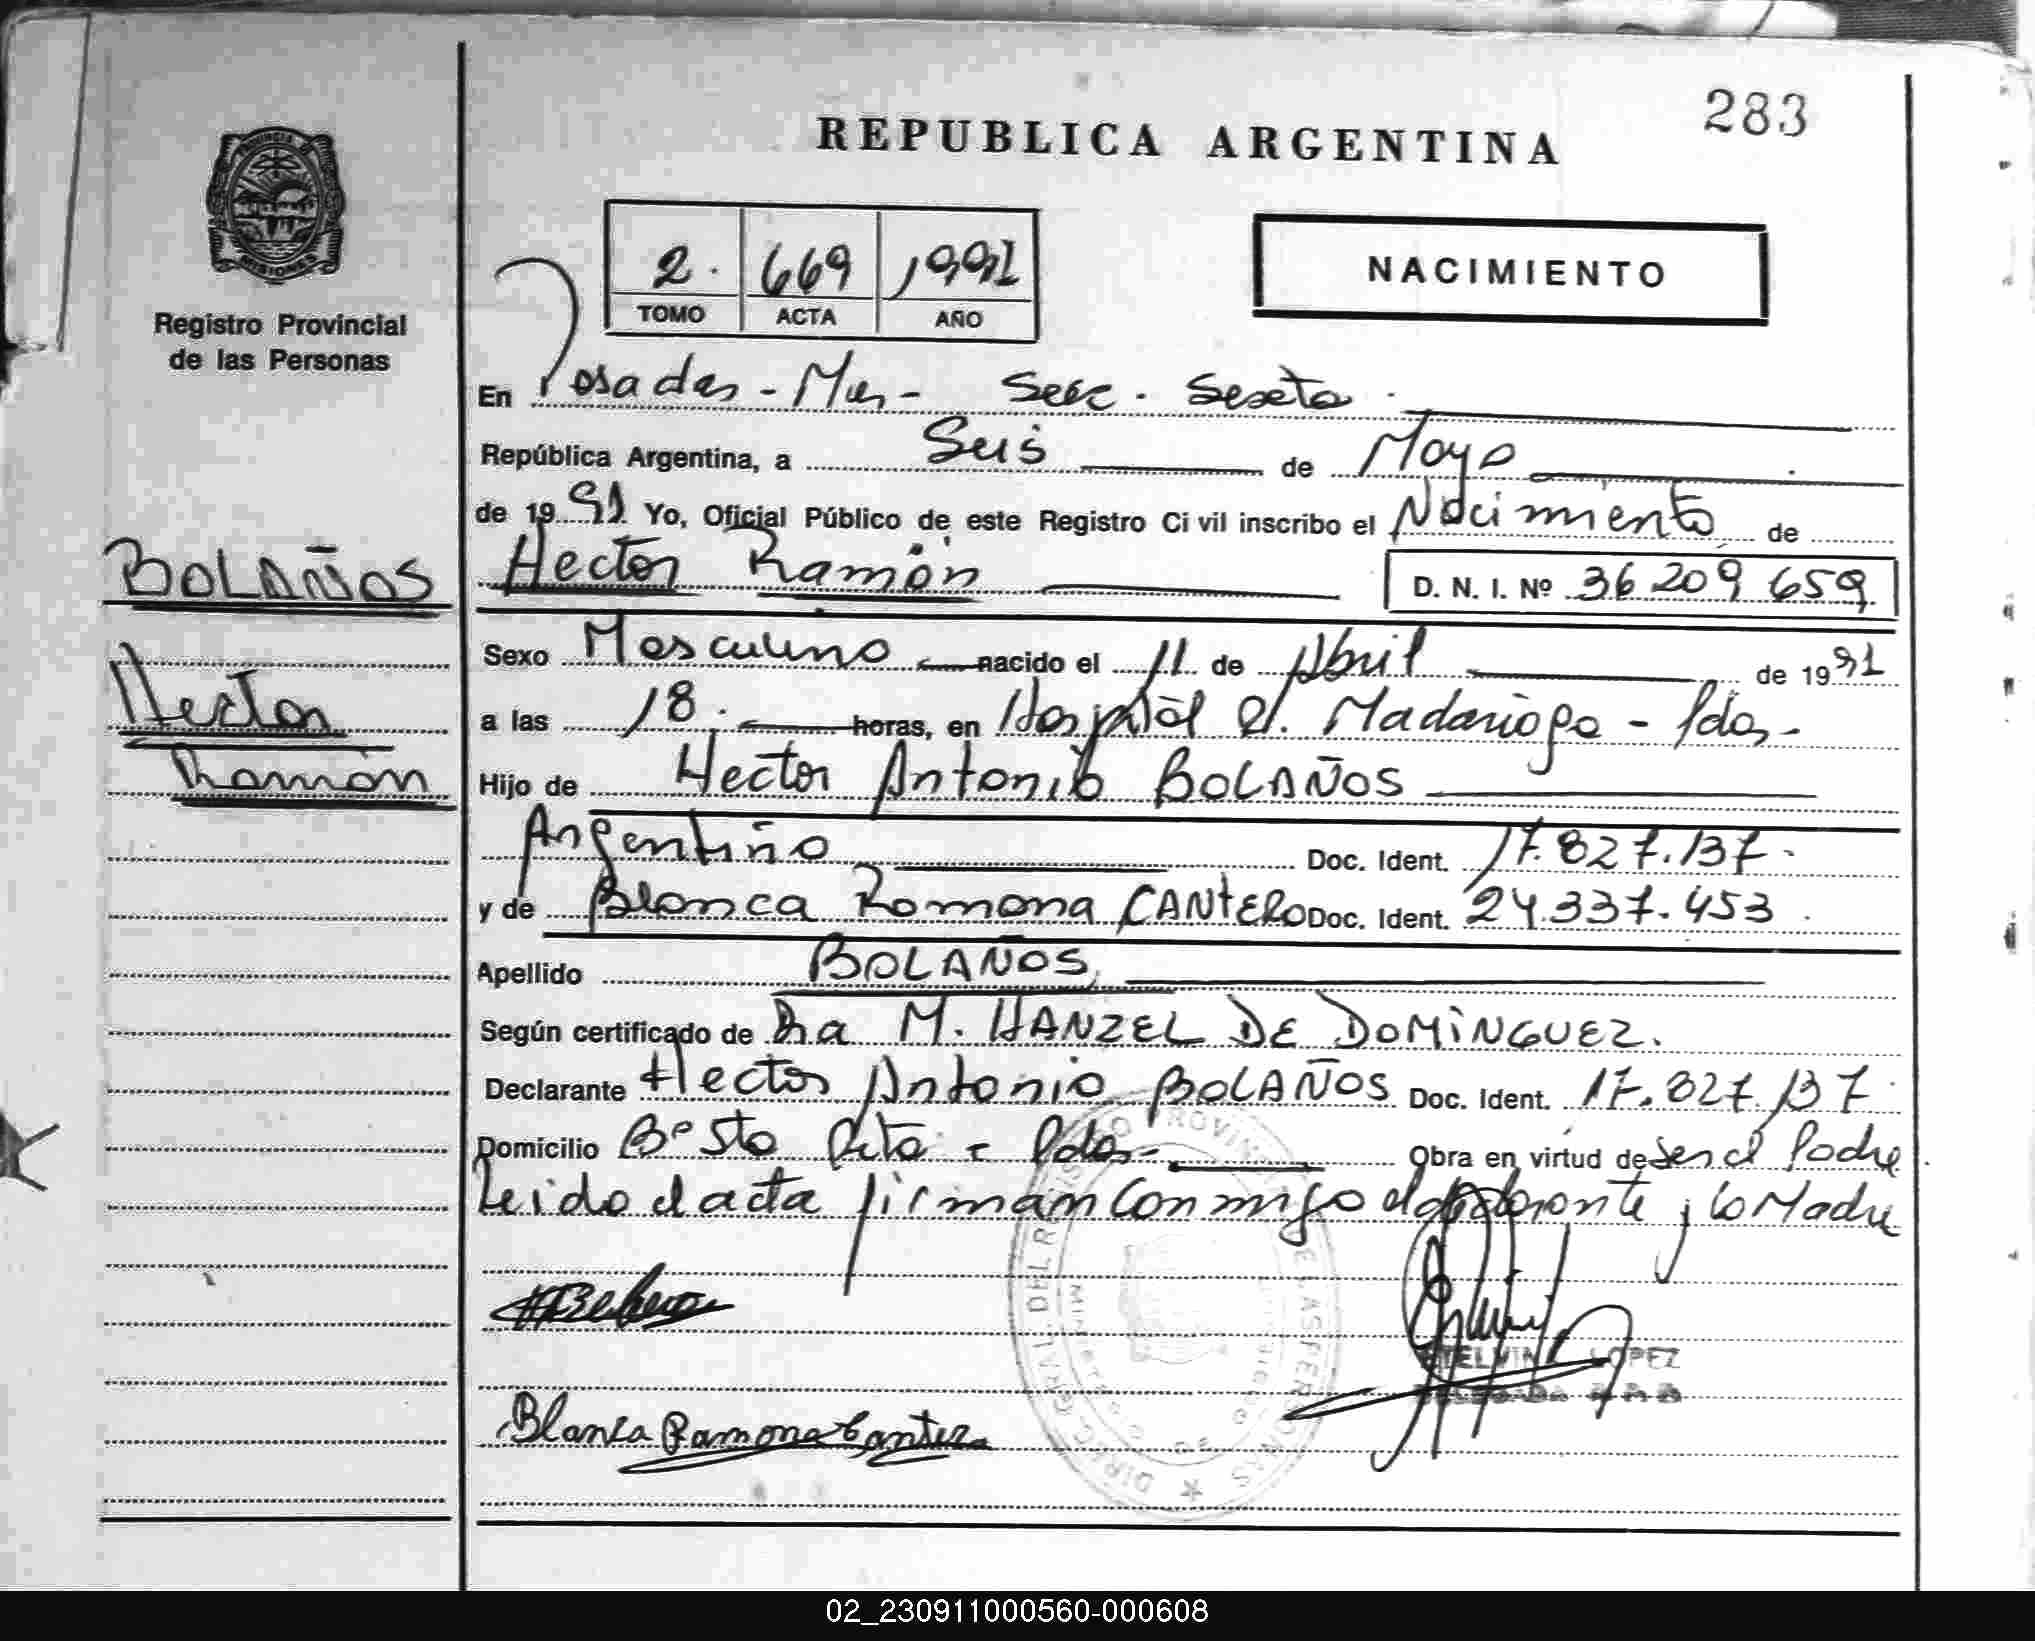 283
REPUBLICA ARGENTINA
PROVINCIA DE
MISIONES
Registro Provincial
de las Personas
2. 669 1991
TOMO ACTA AÑO
NACIMIENTO
En Posadas - Mnes - Secc. Sexta.
República Argentina, a Seis de Mayo
de 1991 Yo, Oficial Público de este Registro Civil inscribo el Nacimiento de
BOLAÑOS
Hector Ramón D. N. I. Nº 36 209 659
Sexo Masculino nacido el 11 de Abril de 1991
Hector
a las 18. horas, en Hospital R. Madariaga - Pdas -
Ramón
Hijo de Hector Antonio BOLAÑOS
Argentino Doc. Ident. 17.827.137.
y de Blanca Ramona CANTERO Doc. Ident. 24.337.453.
Apellido BOLAÑOS
Según certificado de Dra M. HANZEL DE DOMINGUEZ.
Declarante Hector Antonio BOLAÑOS Doc. Ident. 17.827.137
Domicilio Bº Sta Rita - Pdas - Obra en virtud de ser el Padre
Leido el acta firman conmigo el declarante y la Madre
LOPEZ
Blanca Ramona Cantero
02_230911000560-000608